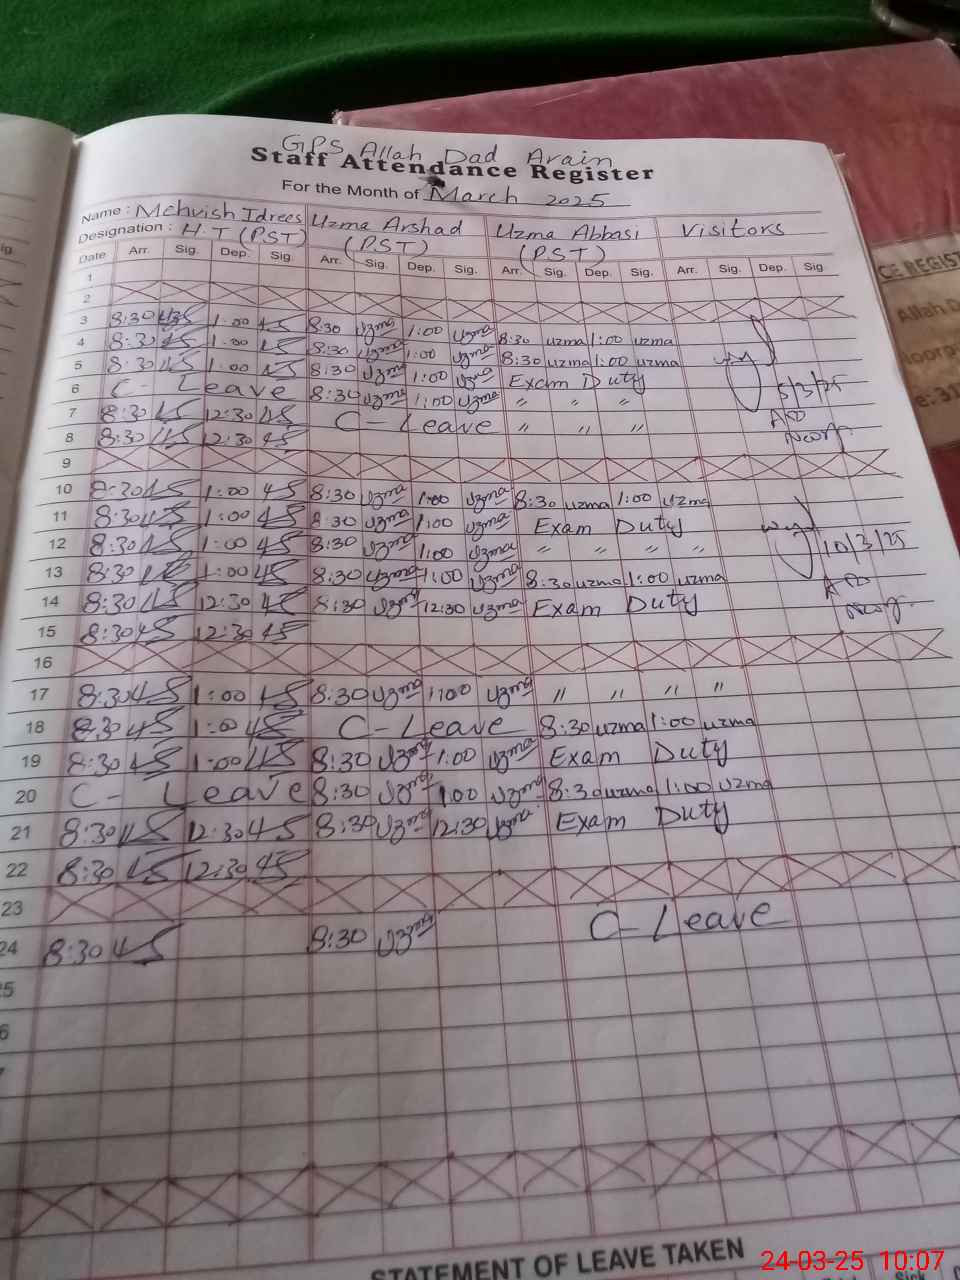 GPS Allah Dad Arain
Staff Attendance Register
For the Month of March 2025
Name : Mehvish Idrees Uzma Arshad Uzma Abbasi Visitors
Designation : H.T (PST) (PST) (PST)
Date Arr. Sig. Dep. Sig. Arr. Sig. Dep. Sig. Arr. Sig. Dep. Sig. Arr. Sig. Dep. Sig.
1
2
3 8:30 1:00 8:30 Uzma 1:00 Uzma 8:30 uzma 1:00 uzma
4 8:30 1:00 8:30 Uzma 1:00 Uzma 8:30 uzma 1:00 uzma
5 8:30 1:00 8:30 Uzma 1:00 Uzma Exam Duty 5/3/25
6 C- Leave 8:30 Uzma 1:00 Uzma " " "
7 8:30 12:30 C- Leave " " "
8 8:30 12:30
9
10 8:30 1:00 8:30 Uzma 1:00 Uzma 8:30 uzma 1:00 uzma
11 8:30 1:00 8:30 Uzma 1:00 Uzma Exam Duty
12 8:30 1:00 8:30 Uzma 1:00 Uzma " " " " 10/3/25
13 8:30 1:00 8:30 Uzma 1:00 Uzma 8:30 uzma 1:00 uzma
14 8:30 12:30 8:30 Uzma 12:30 Uzma Exam Duty
15 8:30 12:30
16
17 8:30 1:00 8:30 Uzma 1:00 Uzma " " " "
18 8:30 1:00 C- Leave 8:30 uzma 1:00 uzma
19 8:30 1:00 8:30 Uzma 1:00 Uzma Exam Duty
20 C- Leave 8:30 Uzma 1:00 Uzma 8:30 uzma 1:00 uzma
21 8:30 12:30 8:30 Uzma 12:30 Uzma Exam Duty
22 8:30 12:30
23
24 8:30 8:30 Uzma C- Leave
STATEMENT OF LEAVE TAKEN
24-03-25 10:07